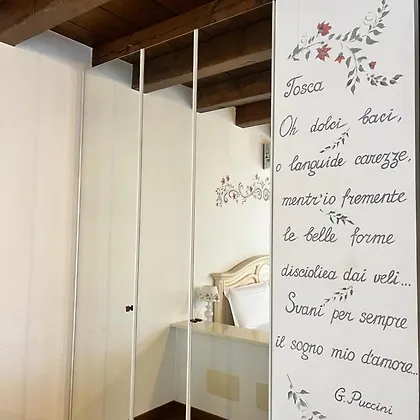 Tosca
Oh dolci baci,
o languide carezze,
mentr'io fremente
le belle forme
disciogliea dai veli...
Svanì per sempre
il sogno mio d'amore...
G. Puccini